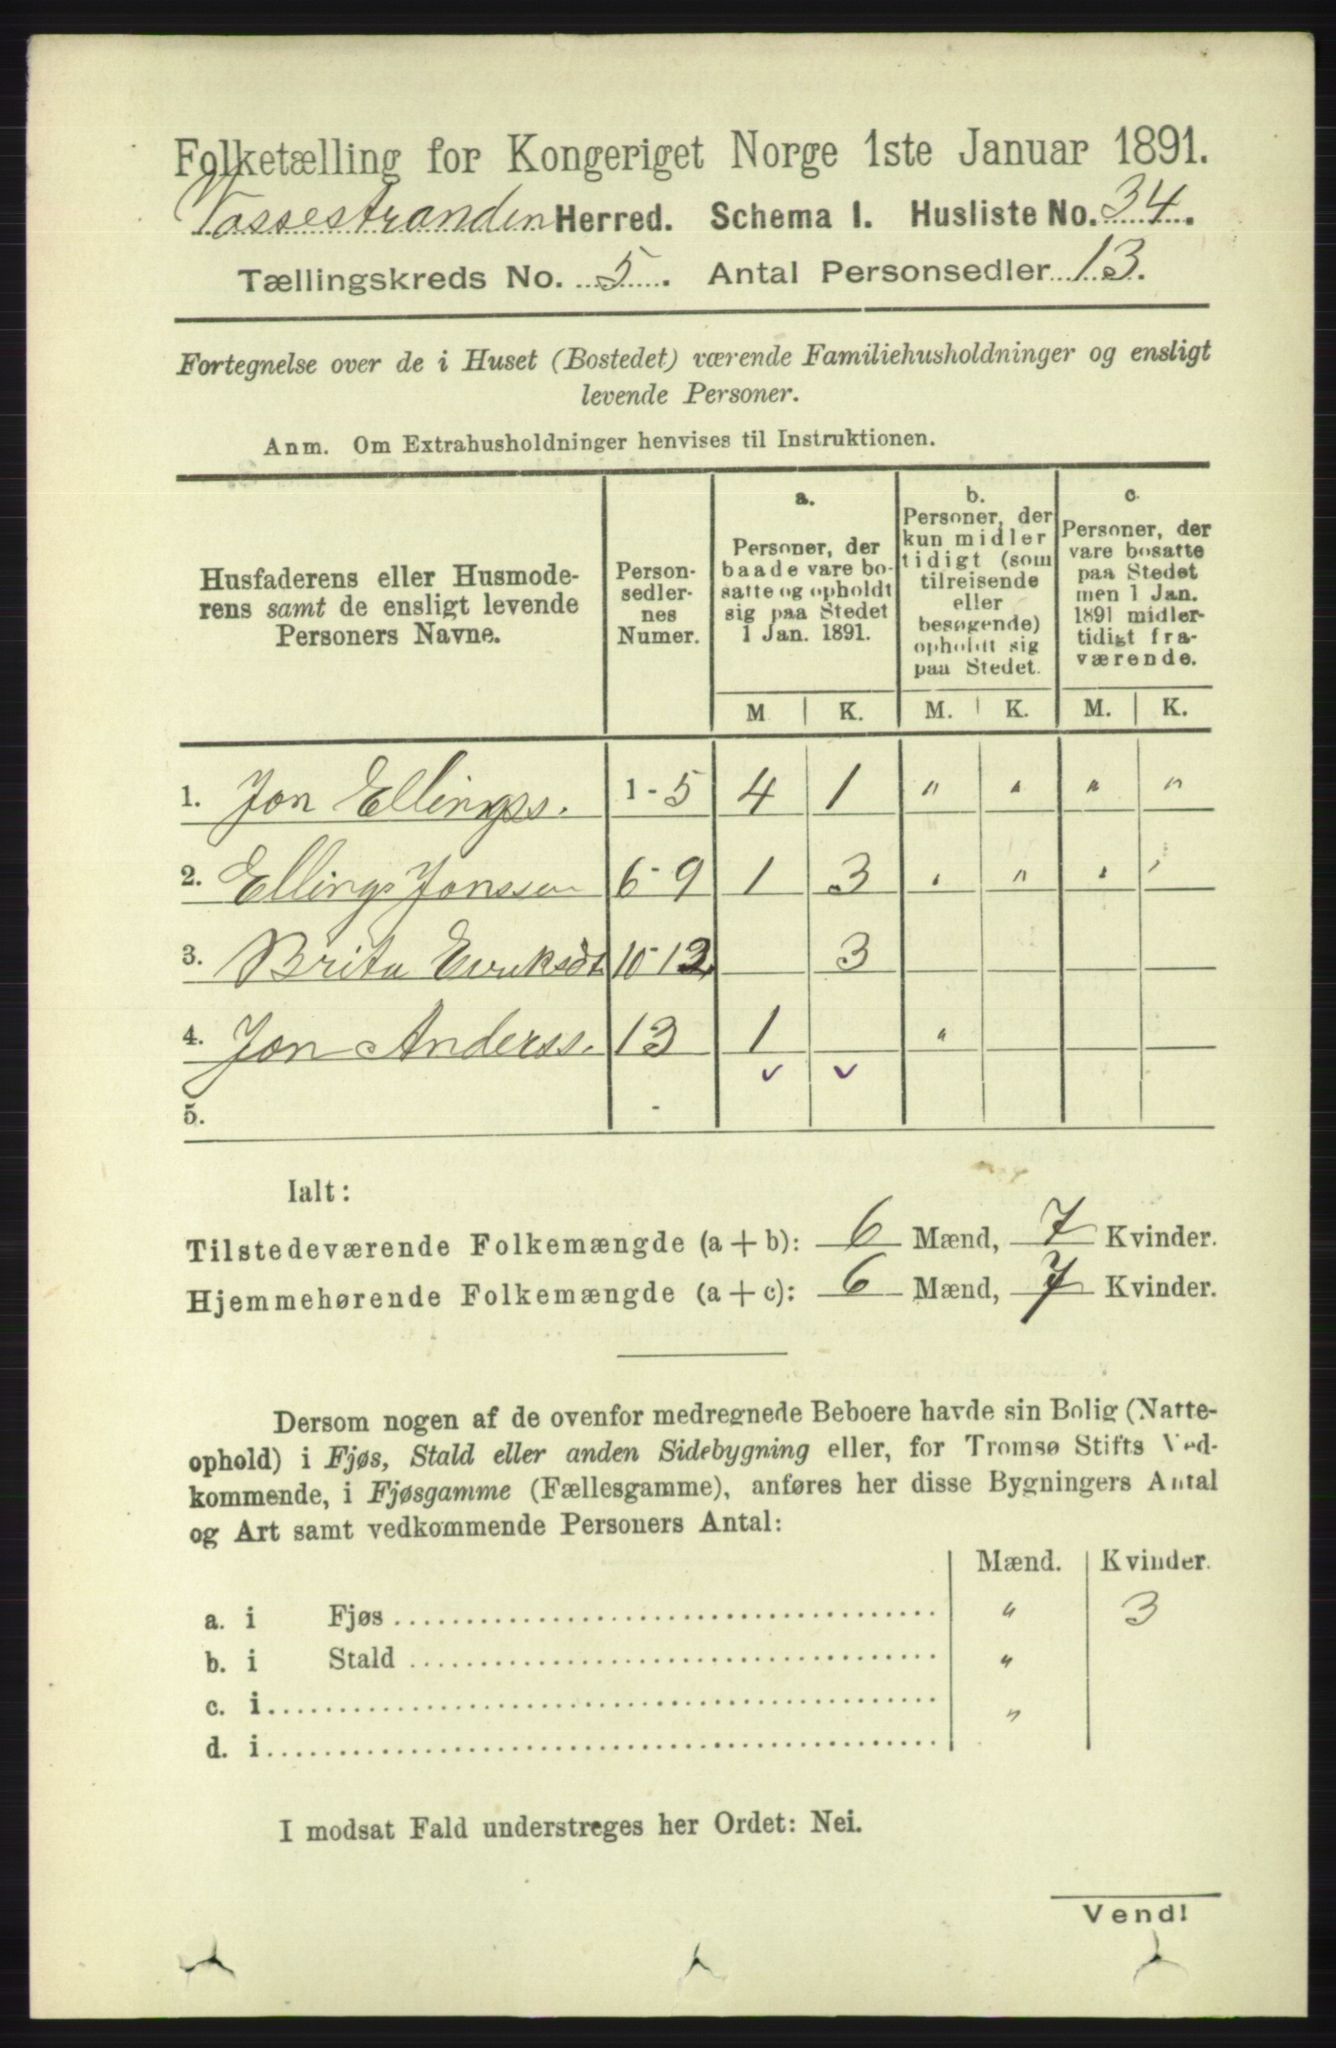 Folketælling for Kongeriget Norge 1ste Januar 1891.
Vossestranden Herred. Schema I. Husliste No. 34.
Tællingskreds No. 5. Antal Personsedler 13.
Fortegnelse over de i Huset (Bostedet) værende Familiehusholdninger og ensligt
levende Personer.
Anm. Om Extrahusholdninger henvises til Instruktionen.
Husfaderens eller Husmode-
rens samt de ensligt levende
Personers Navne.
Person-
sedler-
nes
Numer.
a.
Personer, der
baade vare bo-
satte og opholdt
sig paa Stedet
1 Jan. 1891.
b.
Personer, der
kun midler
tidigt (som
tilreisende
eller
besøgende)
opholdt sig
paa Stedet.
c.
Personer, der
vare bosatte
paa Stedet
men 1 Jan.
1891 midler-
tidigt fra-
værende.
M K. M. K. M. K.
1. Jon Ellings. 1-5 4 1 " " " "
2. Ellings Jonssen 6-9 1 3 " " " "
3. Brita Eiriksdt 10-12 3
4. Jon Anderss. 13 1 "
5. -
Ialt:
Tilstedeværende Folkemængde (a+b): 6 Mænd, 7 Kvinder.
Hjemmehørende Folkemængde (a+c): 6 Mænd, 7 Kvinder.
Dersom nogen af de ovenfor medregnede Beboere havde sin Bolig (Natte-
ophold) i Fjøs, Stald eller anden Sidebygning eller, for Tromsø Stifts Ved-
kommende, i Fjøsgamme (Fællesgamme), anføres her disse Bygningers Antal
og Art samt vedkommende Personers Antal:
Mænd. Kvinder.
a. i Fjøs " 3
b. i Stald "
c. i "
d. i
I modsat Fald understreges her Ordet: Nei.
Vend!